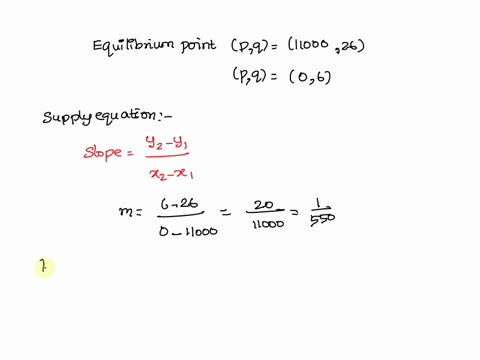 Equilibrium point (p,q) = (11000,26)
(p,q) = (0,6)
Supply equation:-
Slope = y₂-y₁ / x₂-x₁
m = 6-26 / 0-11000 = 20 / 11000 = 1 / 550